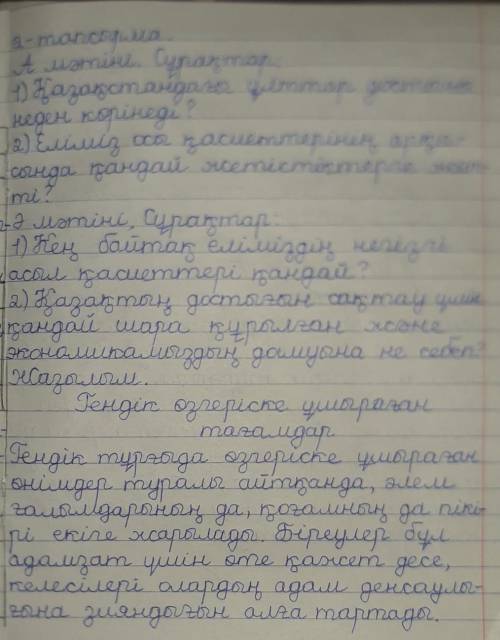 2-тапсырма.
А мәтіні. Сұрақтар:
1) Қазақстандағы ұлттар достығы
неден көрінеді?
2) Еліміз осы қасиеттерінің арқа-
сында қандай жетістіктерге жет-
ті?
Ә мәтіні, Сұрақтар:
1) Кең байтақ еліміздің негізгі
асыл қасиеттері қандай?
2) Қазақтың достығын сақтау үшін
қандай шара құрылған және
экономикамыздың дамуына не себеп?
Жазылым.
Гендік өзгеріске ұшыраған
тағамдар
Гендік тұрғыда өзгеріске ұшыраған
өнімдер туралы айтқанда, әлем
ғалымдарының да, қоғамның да пікі-
рі екіге жарылады. Біреулер бұл
адамзат үшін өте қажет десе,
келесілері олардың адам денсаулы-
ғына зияндығын алға тартады.